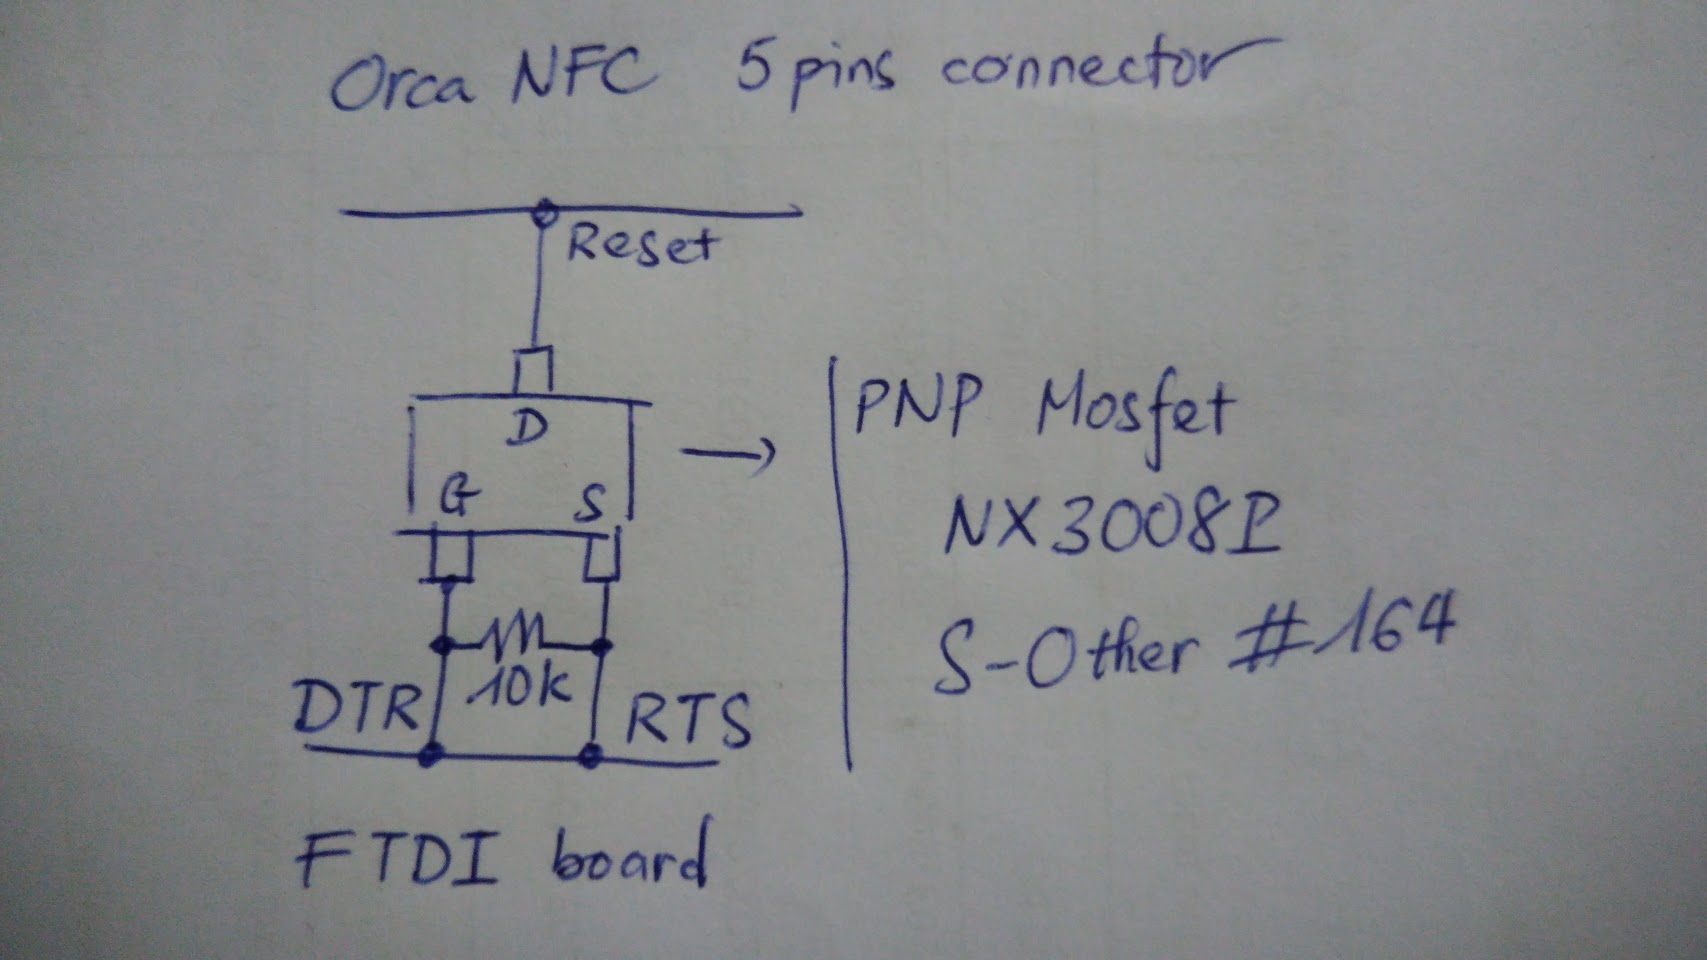 Orca NFC 5 pins connector
Reset
D
G S
10k
DTR RTS
FTDI board
PNP Mosfet
NX3008P
S-Other #164